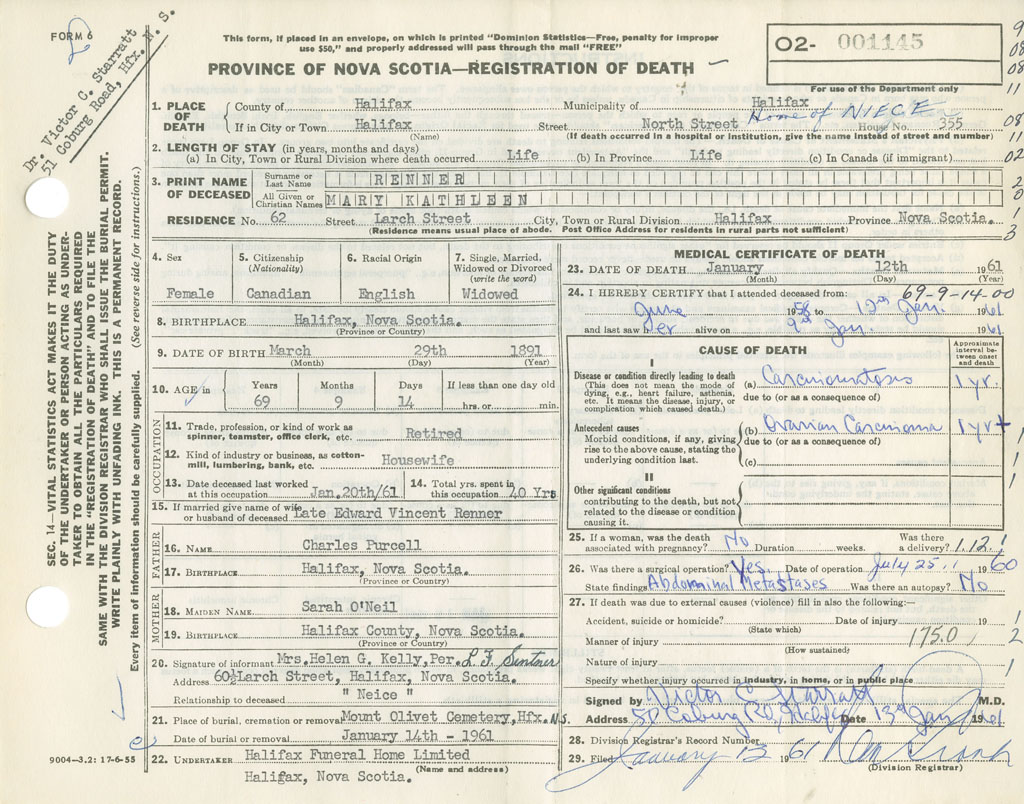 FORM 6
2
Dr. Victor C. Starratt
51 Coburg Road, Hfx. N. S.
This form, if placed in an envelope, on which is printed "Dominion Statistics—Free, penalty for improper
use $50," and properly addressed will pass through the mail "FREE"
PROVINCE OF NOVA SCOTIA—REGISTRATION OF DEATH
O2- 001145
For use of the Department only
1. PLACE OF DEATH County of Halifax Municipality of Halifax
Home of NIECE
If in City or Town Halifax Street North Street House No. 355
(Name) (If death occurred in a hospital or institution, give the name instead of street and number)
2. LENGTH OF STAY (in years, months and days)
(a) In City, Town or Rural Division where death occurred Life (b) In Province Life (c) In Canada (if immigrant)
3. PRINT NAME OF DECEASED Surname or Last Name RENNER
All Given or Christian Names MARY KATHLEEN
RESIDENCE No. 62 Street Larch Street City, Town or Rural Division Halifax Province Nova Scotia.
(Residence means usual place of abode. Post Office Address for residents in rural parts not sufficient)
4. Sex
Female
5. Citizenship (Nationality)
Canadian
6. Racial Origin
English
7. Single, Married, Widowed or Divorced (write the word)
Widowed
8. BIRTHPLACE Halifax, Nova Scotia.
(Province or Country)
9. DATE OF BIRTH March 29th 1891
(Month) (Day) (Year)
10. AGE Years Months Days If less than one day old
69 9 14 hrs. or min.
OCCUPATION
11. Trade, profession, or kind of work as spinner, teamster, office clerk, etc. Retired
12. Kind of industry or business, as cotton-mill, lumbering, bank, etc. Housewife
13. Date deceased last worked at this occupation Jan.20th/61 14. Total yrs. spent in this occupation 40 Yrs
15. If married give name of wife or husband of deceased Late Edward Vincent Renner
FATHER
16. NAME Charles Purcell
17. BIRTHPLACE Halifax, Nova Scotia.
(Province or Country)
MOTHER
18. MAIDEN NAME Sarah O'Neil
19. BIRTHPLACE Halifax County, Nova Scotia.
(Province or Country)
20. Signature of informant Mrs.Helen G. Kelly,Per. L. F.
Address 60½Larch Street, Halifax, Nova Scotia.
Relationship to deceased " Neice "
21. Place of burial, cremation or removal Mount Olivet Cemetery,Hfx.N.S.
Date of burial or removal January 14th - 1961
22. UNDERTAKER Halifax Funeral Home Limited
(Name and address)
Halifax, Nova Scotia.
MEDICAL CERTIFICATE OF DEATH
23. DATE OF DEATH January 12th 1961
(Month) (Day) (Year)
69-9-14-00
24. I HEREBY CERTIFY that I attended deceased from:
June 1958 to 12th Jan. 1961
and last saw her alive on 9th Jan. 1961
CAUSE OF DEATH
Approximate interval between onset and death
I
Disease or condition directly leading to death
(This does not mean the mode of dying, e.g., heart failure, asthenia, etc. It means the disease, injury, or complication which caused death.)
(a) Carcinomatosis 1 yr.
due to (or as a consequence of)
Antecedent causes
Morbid conditions, if any, giving rise to the above cause, stating the underlying condition last.
(b) Ovarian Carcinoma 1 yr +
due to (or as a consequence of)
(c)
II
Other significant conditions
contributing to the death, but not related to the disease or condition causing it.
25. If a woman, was the death associated with pregnancy? No Duration weeks. Was there a delivery? 1.12.1
26. Was there a surgical operation? Yes. Date of operation July 25. 1960
State findings Abdominal Metastases Was there an autopsy? No
27. If death was due to external causes (violence) fill in also the following:—
Accident, suicide or homicide? Date of injury 19
(State which)
Manner of injury 175.0
(How sustained)
Nature of injury
Specify whether injury occurred in industry, in home, or in public place
Signed by Victor C. Starratt M.D.
Address 51 Coburg Rd, Halifax Date 13th Jan 1961
28. Division Registrar's Record Number
29. Filed January 13 1961
(Division Registrar)
SEC. 14—VITAL STATISTICS ACT MAKES IT THE DUTY
OF THE UNDERTAKER OR PERSON ACTING AS UNDER-
TAKER TO OBTAIN ALL THE PARTICULARS REQUIRED
IN THE "REGISTRATION OF DEATH" AND TO FILE THE
SAME WITH THE DIVISION REGISTRAR WHO SHALL ISSUE THE BURIAL PERMIT.
WRITE PLAINLY WITH UNFADING INK. THIS IS A PERMANENT RECORD.
Every item of information should be carefully supplied. (See reverse side for instructions.)
9004—3.2: 17-6-55